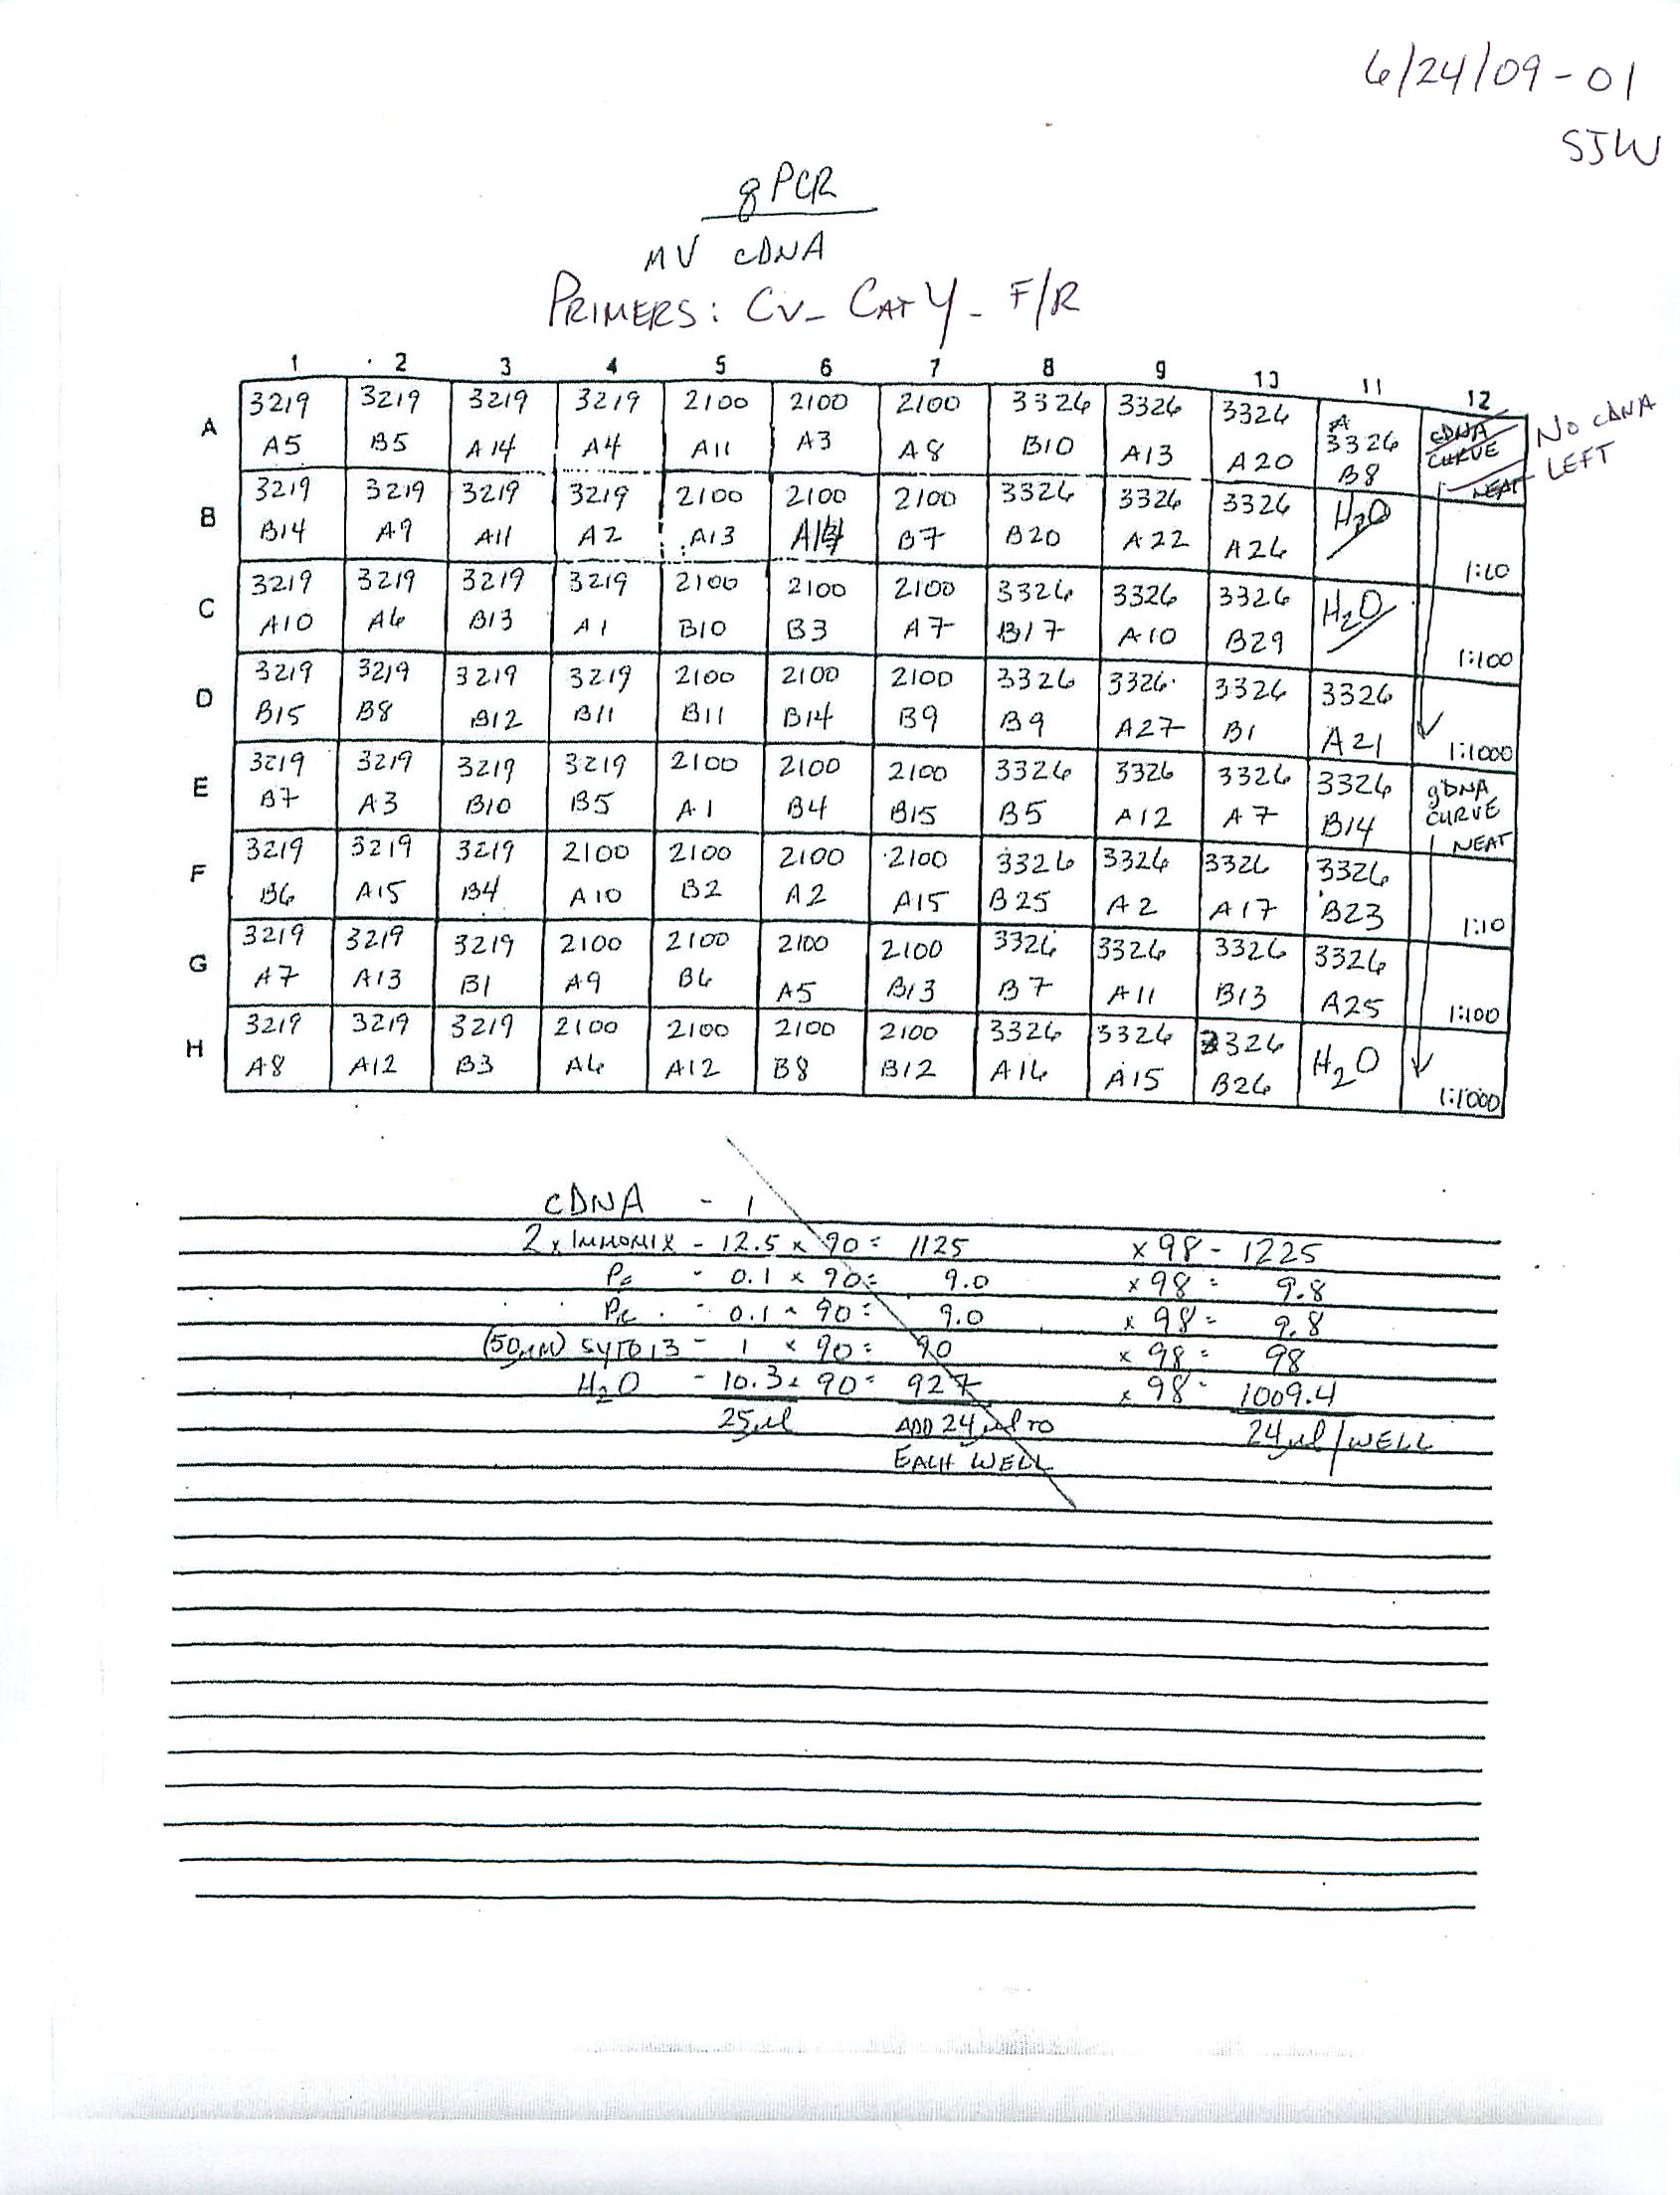 6/24/09-01
SJW
qPCR
MV cDNA
PRIMERS: CV_CAT4_F/R
1 2 3 4 5 6 7 8 9 10 11 12
A 3219 3219 3219 3219 2100 2100 2100 3326 3326 3326 3326 cDNA CURVE NEAT
A5 B5 A14 A4 A11 A3 A8 B10 A13 A20 B8
NO cDNA
LEFT
B 3219 3219 3219 3219 2100 2100 2100 3326 3326 3326 H2O
B14 A9 A11 A2 A13 B7 B20 A22 A26 1:10
C 3219 3219 3219 3219 2100 2100 2100 3326 3326 3326 H2O
A10 A6 B13 A1 B10 B3 A7 B17 A10 B29 1:100
D 3219 3219 3219 3219 2100 2100 2100 3326 3326 3326 3326
B15 B8 B12 B11 B11 B14 B9 B9 A27 B1 A21 1:1000
E 3219 3219 3219 3219 2100 2100 2100 3326 3326 3326 3326 gDNA CURVE
B7 A3 B10 B5 A1 B4 B15 B5 A12 A7 B14 NEAT
F 3219 3219 3219 2100 2100 2100 2100 3326 3326 3326 3326
B6 A15 B4 A10 B2 A2 A15 B25 A2 A17 B23 1:10
G 3219 3219 3219 2100 2100 2100 2100 3326 3326 3326 3326
A7 A13 B1 A9 B6 A5 B13 B7 A11 B13 A25 1:100
H 3219 3219 3219 2100 2100 2100 2100 3326 3326 3326 H2O
A8 A12 B3 A6 A12 B8 B12 A16 A15 B26 1:1000
cDNA - 1
2x IMMOMIX - 12.5 x 90 = 1125 x 98 - 1225
PF - 0.1 x 90 = 9.0 x 98 = 9.8
PR - 0.1 x 90 = 9.0 x 98 = 9.8
(50µM) SYTO13 - 1 x 90 = 90 x 98 = 98
H2O - 10.3 x 90 = 927 x 98 = 1009.4
25µl ADD 24µl TO 24µl/WELL
EACH WELL